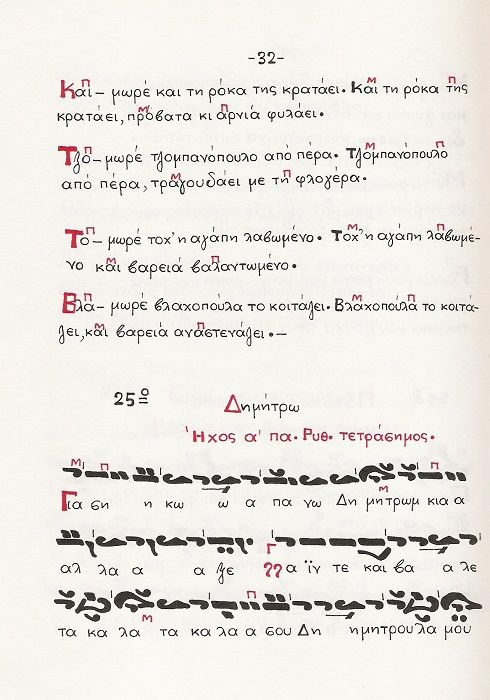 -32-
Και – μωρέ και τη ρόκα της κρατάει. Και τη ρόκα της
κρατάει, πρόβατα κι αρνιά φυλάει.
Τζο – μωρέ τζομπανόπουλο από πέρα. Τζομπανόπουλο
από πέρα, τραγουδάει με τη φλογέρα.
Το – μωρέ τοχ'η αγάπη λαβωμένο. Τοχ'η αγάπη λαβωμέ-
νο και βαρειά βαλαντωμένο.
Βλα – μωρέ βλαχοπούλα το κοιτάζει. Βλαχοπούλα το κοιτά-
ζει, και βαρειά αναστενάζει. –
25ο Δημήτρω
Ήχος α' πα. Ρυθ. τετράσημος.
Για ση η κω ω α πα νω Δη μητρωμ κια α
αλ λα α α ζε α ϊν τε και βα α λε
τα κα λα τα κα λα α σου Δη η μητρουλα μου